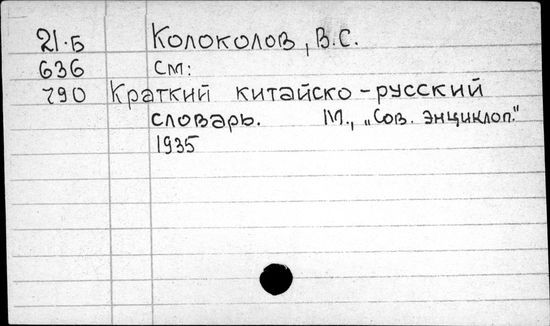 21·Б Колоколов, В.С.
636 см:
790 Краткий китайско-русский
словарь. М., „Сов. энциклоп."
1935